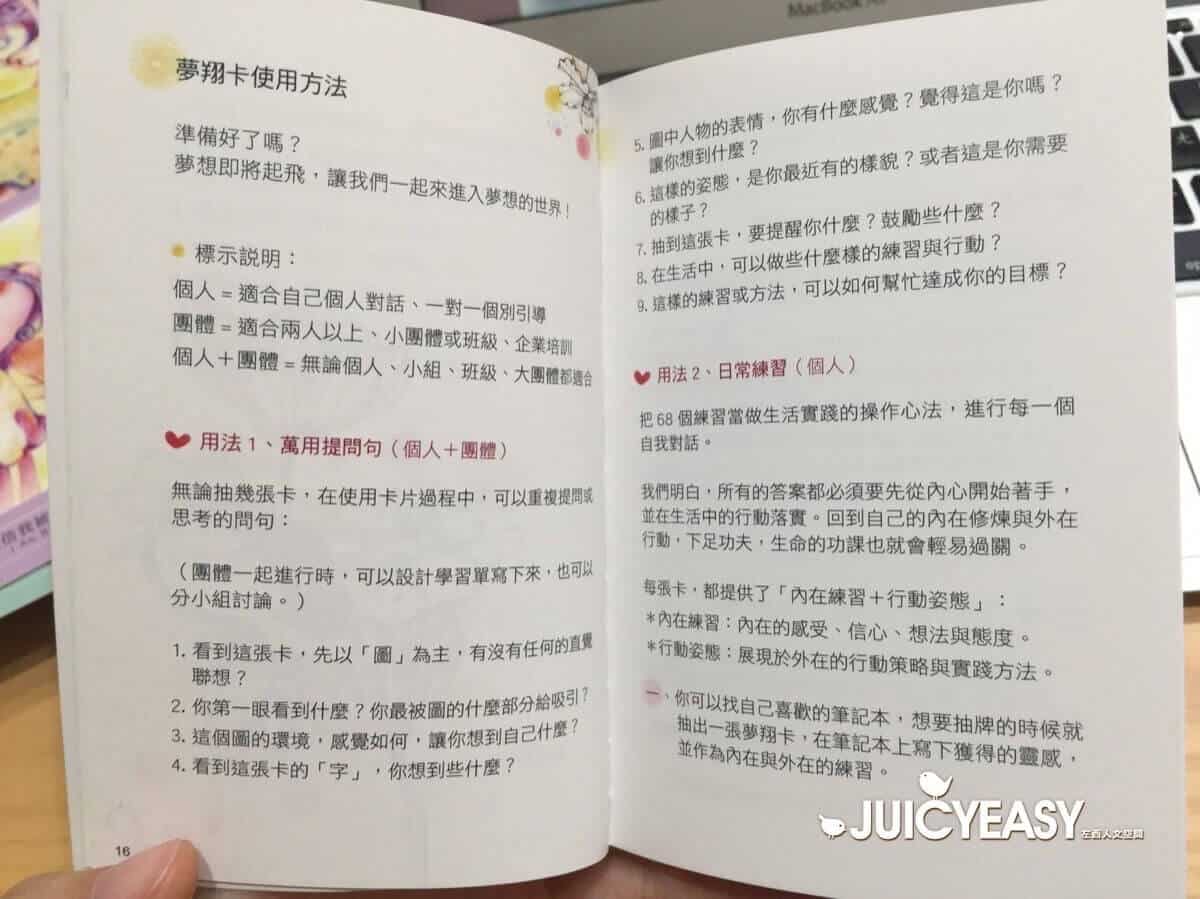 夢翔卡使用方法
準備好了嗎？
夢想即將起飛，讓我們一起來進入夢想的世界！
標示説明：
個人＝適合自己個人對話、一對一個別引導
團體＝適合兩人以上、小團體或班級、企業培訓
個人＋團體＝無論個人、小組、班級、大團體都適合
用法 1、萬用提問句（個人＋團體）
無論抽幾張卡，在使用卡片過程中，可以重複提問或
思考的問句：
（團體一起進行時，可以設計學習單寫下來，也可以
分小組討論。）
1. 看到這張卡，先以「圖」為主，有沒有任何的直覺
聯想？
2. 你第一眼看到什麼？你最被圖的什麼部分給吸引？
3. 這個圖的環境，感覺如何，讓你想到自己什麼？
4. 看到這張卡的「字」，你想到些什麼？
16
5. 圖中人物的表情，你有什麼感覺？覺得這是你嗎？
讓你想到什麼？
6. 這樣的姿態，是你最近有的樣貌？或者這是你需要
的樣子？
7. 抽到這張卡，要提醒你什麼？鼓勵些什麼？
8. 在生活中，可以做些什麼樣的練習與行動？
9. 這樣的練習或方法，可以如何幫忙達成你的目標？
用法 2、日常練習（個人）
把 68 個練習當做生活實踐的操作心法，進行每一個
自我對話。
我們明白，所有的答案都必須要先從內心開始著手，
並在生活中的行動落實。回到自己的內在修煉與外在
行動，下足功夫，生命的功課也就會輕易過關。
每張卡，都提供了「內在練習＋行動姿態」：
＊內在練習：內在的感受、信心、想法與態度。
＊行動姿態：展現於外在的行動策略與實踐方法。
一、你可以找自己喜歡的筆記本，想要抽牌的時候就
抽出一張夢翔卡，在筆記本上寫下獲得的靈感，
並作為內在與外在的練習。
MacBook
JUICYEASY
左西人文空間